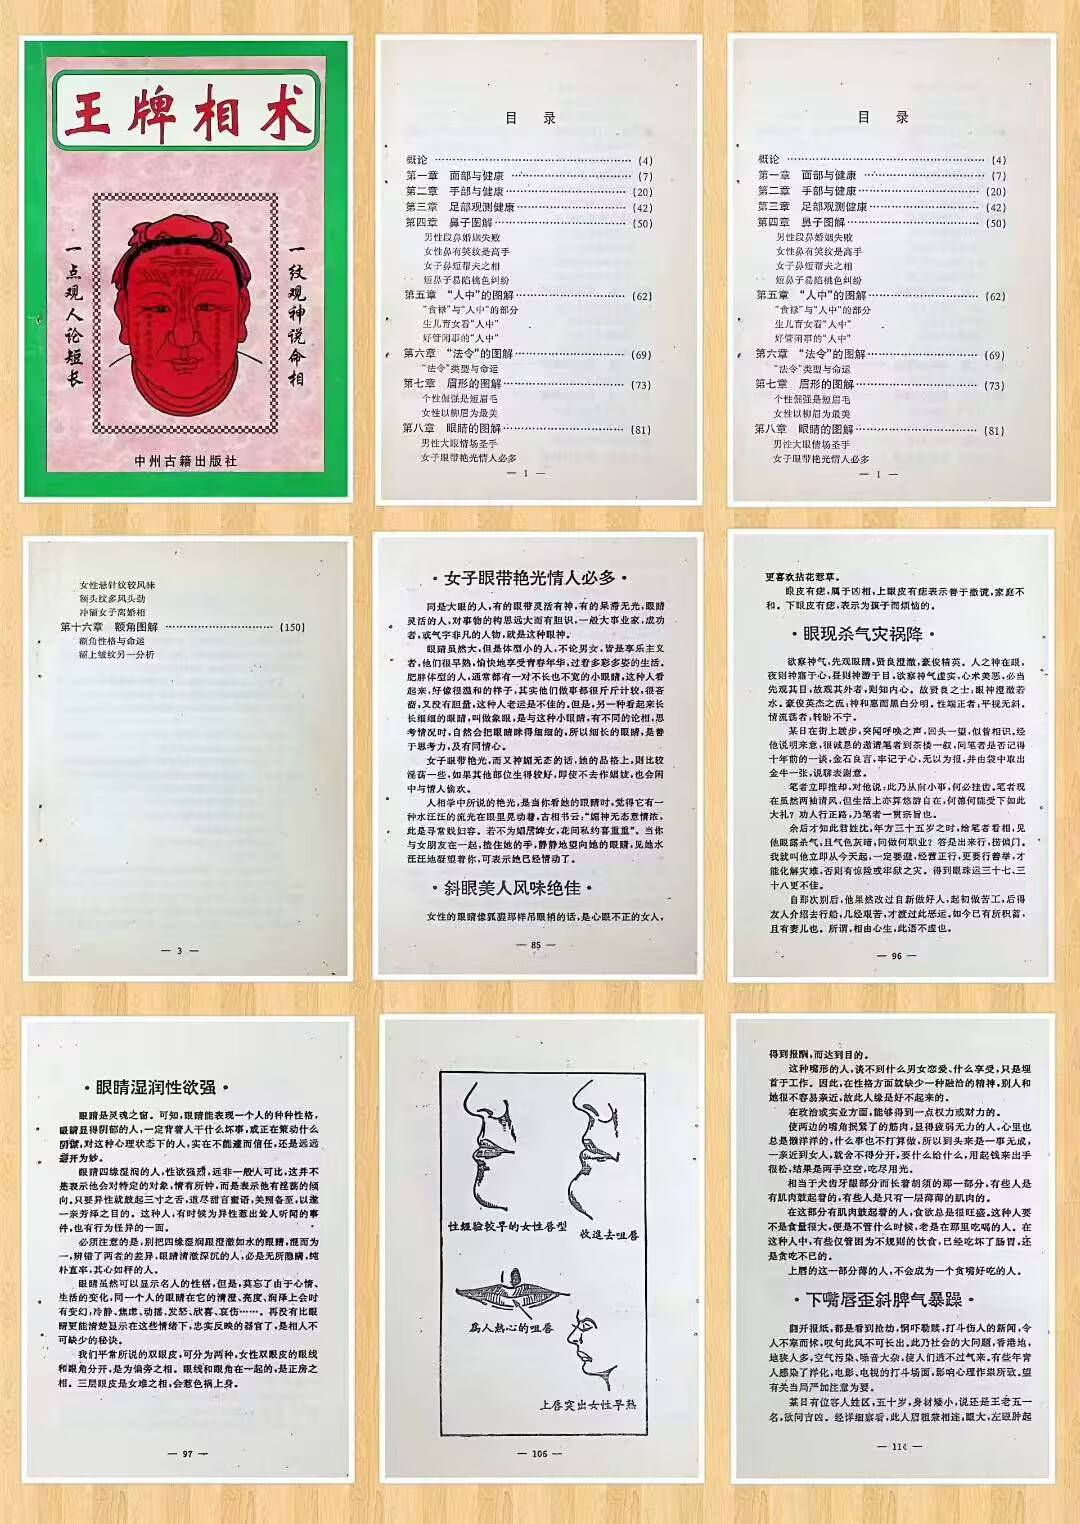 王牌相术
一纹观神说命相
一点观人论短长
中州古籍出版社
目 录
概论 …… (4)
第一章 面部与健康 …… (7)
第二章 手部与健康 …… (20)
第三章 足部观测健康 …… (42)
第四章 鼻子图解 …… (50)
男性段鼻婚姻失败
女性鼻有笑纹是高手
女子鼻短帮夫之相
短鼻子易陷桃色纠纷
第五章 “人中”的图解 …… (62)
“食禄”与“人中”的部分
生儿育女看“人中”
好管闲事的“人中”
第六章 “法令”的图解 …… (69)
“法令”类型与命运
第七章 眉形的图解 …… (73)
个性倔强是短眉毛
女性以柳眉为最美
第八章 眼睛的图解 …… (81)
男性大眼情场圣手
女子眼带艳光情人必多
— 1 —
目 录
概论 …… (4)
第一章 面部与健康 …… (7)
第二章 手部与健康 …… (20)
第三章 足部观测健康 …… (42)
第四章 鼻子图解 …… (50)
男性段鼻婚姻失败
女性鼻有笑纹是高手
女子鼻短帮夫之相
短鼻子易陷桃色纠纷
第五章 “人中”的图解 …… (62)
“食禄”与“人中”的部分
生儿育女看“人中”
好管闲事的“人中”
第六章 “法令”的图解 …… (69)
“法令”类型与命运
第七章 眉形的图解 …… (73)
个性倔强是短眉毛
女性以柳眉为最美
第八章 眼睛的图解 …… (81)
男性大眼情场圣手
女子眼带艳光情人必多
— 1 —
女性悬针纹较风味
额头纹多风头劲
冲额女子离婚相
第十六章 额角图解 …… (150)
额角性格与命运
额上皱纹另一分析
— 3 —
·女子眼带艳光情人必多·
同是大眼的人,有的眼带灵活有神,有的呆滞无光,眼睛
灵活的人,对事物的构思远大而有胆识,一般大事业家,成功
者,或气宇非凡的人物,就是这种眼神。
眼睛虽然大,但是体型小的人,不论男女,皆是享乐主义
者,他们很早熟,愉快地享受青春年华,过着多彩多姿的生活。
肥胖体型的人,通常都有一对不长也不宽的小眼睛,这种人看
起来,好像很温和的样子,其实他们做事都很斤斤计较,很吝
啬,又没有胆量,这种人老运是不佳的。但是,另一种看起来长
长细细的眼睛,叫做象眼,是与这种小眼睛,有不同的论相,思
考情况时,自然会把眼睛眯得细细的,所以细长的眼睛,是善
于思考力,及有同情心。
女子眼带艳光,而又神媚无态的话,她的品格上,则比较
淫荡一些,如果其他部位生得较好,即使不去作娼妓,也会闲
中与情人偷欢。
人相学中所说的艳光,是当你看她的眼睛时,觉得它有一
种水汪汪的流光在眼里晃动着,古相书云:“媚神无态意情浓,
此是寻常奴妇容。若不为娼居婢女,花间私约喜重重”。当你
与女朋友在一起,揸住她的手,静静地望向她的眼睛,见她水
汪汪地凝望着你,可表示她已经情动了。
·斜眼美人风味绝佳·
女性的眼睛像狐狸那样吊眼梢的话,是心眼不正的女人,
— 85 —
更喜欢拈花惹草。
眼皮有痣,属于凶相,上眼皮有痣表示善于撒谎,家庭不
和。下眼皮有痣,表示为孩子而烦恼的。
·眼现杀气灾祸降·
欲察神气,先观眼睛,贤良澄澈,豪俊精英。人之神在眼,
夜则神寤于心,昼则神游于目,欲察神气虚实,心术美恶,必当
先观其目,故观其外者,则知内心。故贤良之士;眼神澄澈若
水。豪俊英杰之流;神和惠而黑白分明。性端正者;平视无斜。
情流荡者;转盼不宁。
某日在街上踱步,突闻呼唤之声,回头一望,似曾相识。经
他说明来意,很诚恳的邀请笔者到茶楼一叙,问笔者是否记得
十年前的一谈,金石良言,牢记于心,无以为报,并由袋中取出
金牛一张,说聊表谢意。
笔者立即推却,对他说:此乃从前小事,何必挂齿,笔者现
在虽然两袖清风,但生活上亦算悠游自在,何德何能受下如此
大礼?劝人行正路,乃笔者一贯宗旨也。
余后才如此君姓沈,年方三十五岁之时,给笔者看相,见
他眼露杀气,且气色灰暗,问做何职业?答是出来行,捞偏门。
我就叫他立即从今天起,一定要避,经营正行,更要行善举,才
能化解灾难,否则有惊险或牢狱之灾。得到眼珠运三十七、三
十八更不佳。
自那次别后,他果然改过自新做好人,起初做苦工,后得
友人介绍去行船,几经艰苦,才渡过此恶运,如今已有所积蓄,
且有妻儿也。所谓,相由心生,此语不虚也。
— 96 —
·眼睛湿润性欲强·
眼睛是灵魂之窗。可知,眼睛能表现一个人的种种性格,
眼睛显得阴郁的人,一定背着人干什么坏事,或正在策动什么
阴谋,对这种心理状态下的人,实在不能邃而信任,还是远远
避开为妙。
眼睛四缘湿润的人,性欲强烈,远非一般人可比,这并不
是表示他会对特定的对象,情有所钟,而是表示他有淫荡的倾
向,只要异性就鼓起三寸之舌,道尽甜言蜜语,关照备至,以遂
一亲芳泽之目的。这种人,有时候为异性惹出耸人听闻的事
件,也有行为怪异的一面。
必须注意的是,别把四缘湿润跟澄澈如水的眼睛,混而为
一,辨错了两者的差异,眼睛清澈深沉的人,必是无所隐瞒,纯
朴直率,其心如秤的人。
眼睛虽然可以显示名人的性格,但是,莫忘了由于心情、
生活的变化,同一个人的眼睛在它的清澄、亮度、润泽上会时
有变幻,冷静、焦虑、动摇、发怒、欣喜、哀伤……。再没有比眼
睛更能清楚显示在这些情绪下,忠实反映的器官了,是相人不
可缺少的秘诀。
我们平常所说的双眼皮,可分为两种,女性双眼皮的眼线
和眼角分开,是为偏旁之相。眼线和眼角在一起的,是正房之
相。三层眼皮是女难之相,会惹色祸上身。
— 97 —
性经验较早的女性唇型
收进去咀唇
为人热心的咀唇
上唇突出女性早熟
— 106 —
得到报酬,而达到目的。
这种嘴形的人,谈不到什么男女恋爱、什么享受,只是埋
首于工作。因此,在性格方面就缺少一种融洽的精神,别人和
她很不容易亲近,故此人缘是好不起来的。
在政治或实业方面,能够得到一点权力或财力的。
使两边的嘴角抿紧了的筋肉,显得疲弱无力的人,心里也
总是懒洋洋的,什么事也不打算做,所以到头来是一事无成,
一亲近到女人,就舍不得分开,要什么给什么,用起钱来出手
很松,结果是两手空空,吃尽用光。
相当于犬齿牙龈部分而长着胡须的那一部分,有些人是
有肌肉鼓起着的,有些人是只有一层薄薄的肌肉的。
在这部分有肌肉鼓起着的人,食欲总是很旺盛。这种人要
不是食量很大,便是不管什么时候,老是在那里吃喝的人。在
这种人中,有些仅管因为不规则的饮食,已经吃坏了肠胃,还
是贪吃不已的。
上唇的这一部分薄的人,不会成为一个贪嘴好吃的人。
·下嘴唇歪斜脾气暴躁·
翻开报纸,都是看到抢劫,恫吓勒赎,打斗伤人的新闻,令
人不寒而怵,叹句此风不可长出。此乃社会的大问题,香港地,
地狭人多,空气污染、噪音大杂,使人们透不过气来。有些年青
人感染了洋化,电影、电视的打斗场面,影响心理作祟所致。望
有关当局严加注意为要。
某日有位客人姓区,五十岁,身材矮小,说还是王老五一
名,欲问吉凶。经详细察看,此人眉粗兼相连,眼大,左眼肿起